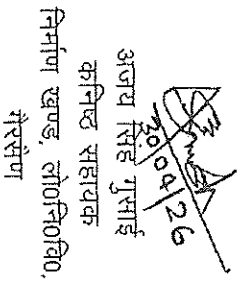 30/04/26
अजय सिंह गुसाईं
कनिष्ठ सहायक
निर्माण खण्ड, लो०नि०वि०,
गैरसैंण